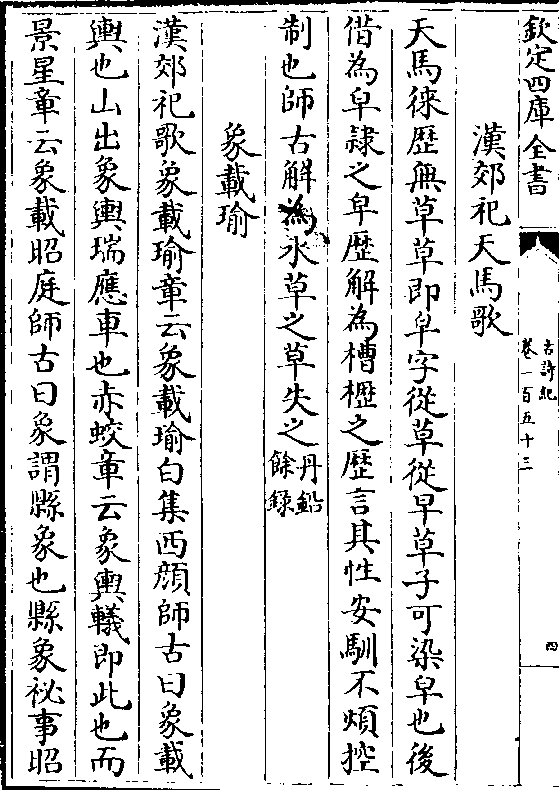 欽定四庫全書
古詩紀
卷一百五十三
四
漢郊祀天馬歌
天馬徠歴無草草即皁字從草從早草子可染皁也後
借為皁隷之皁歴解為槽櫪之歴言其性安馴不煩控
制也師古解為水草之草失之丹鉛
餘録
象載瑜
漢郊祀歌象載瑜章云象載瑜白集西顔師古曰象載
輿也山出象輿瑞應車也赤蛟章云象輿轙即此也而
景星章云象載昭庭師古曰象謂縣象也縣象祕事昭